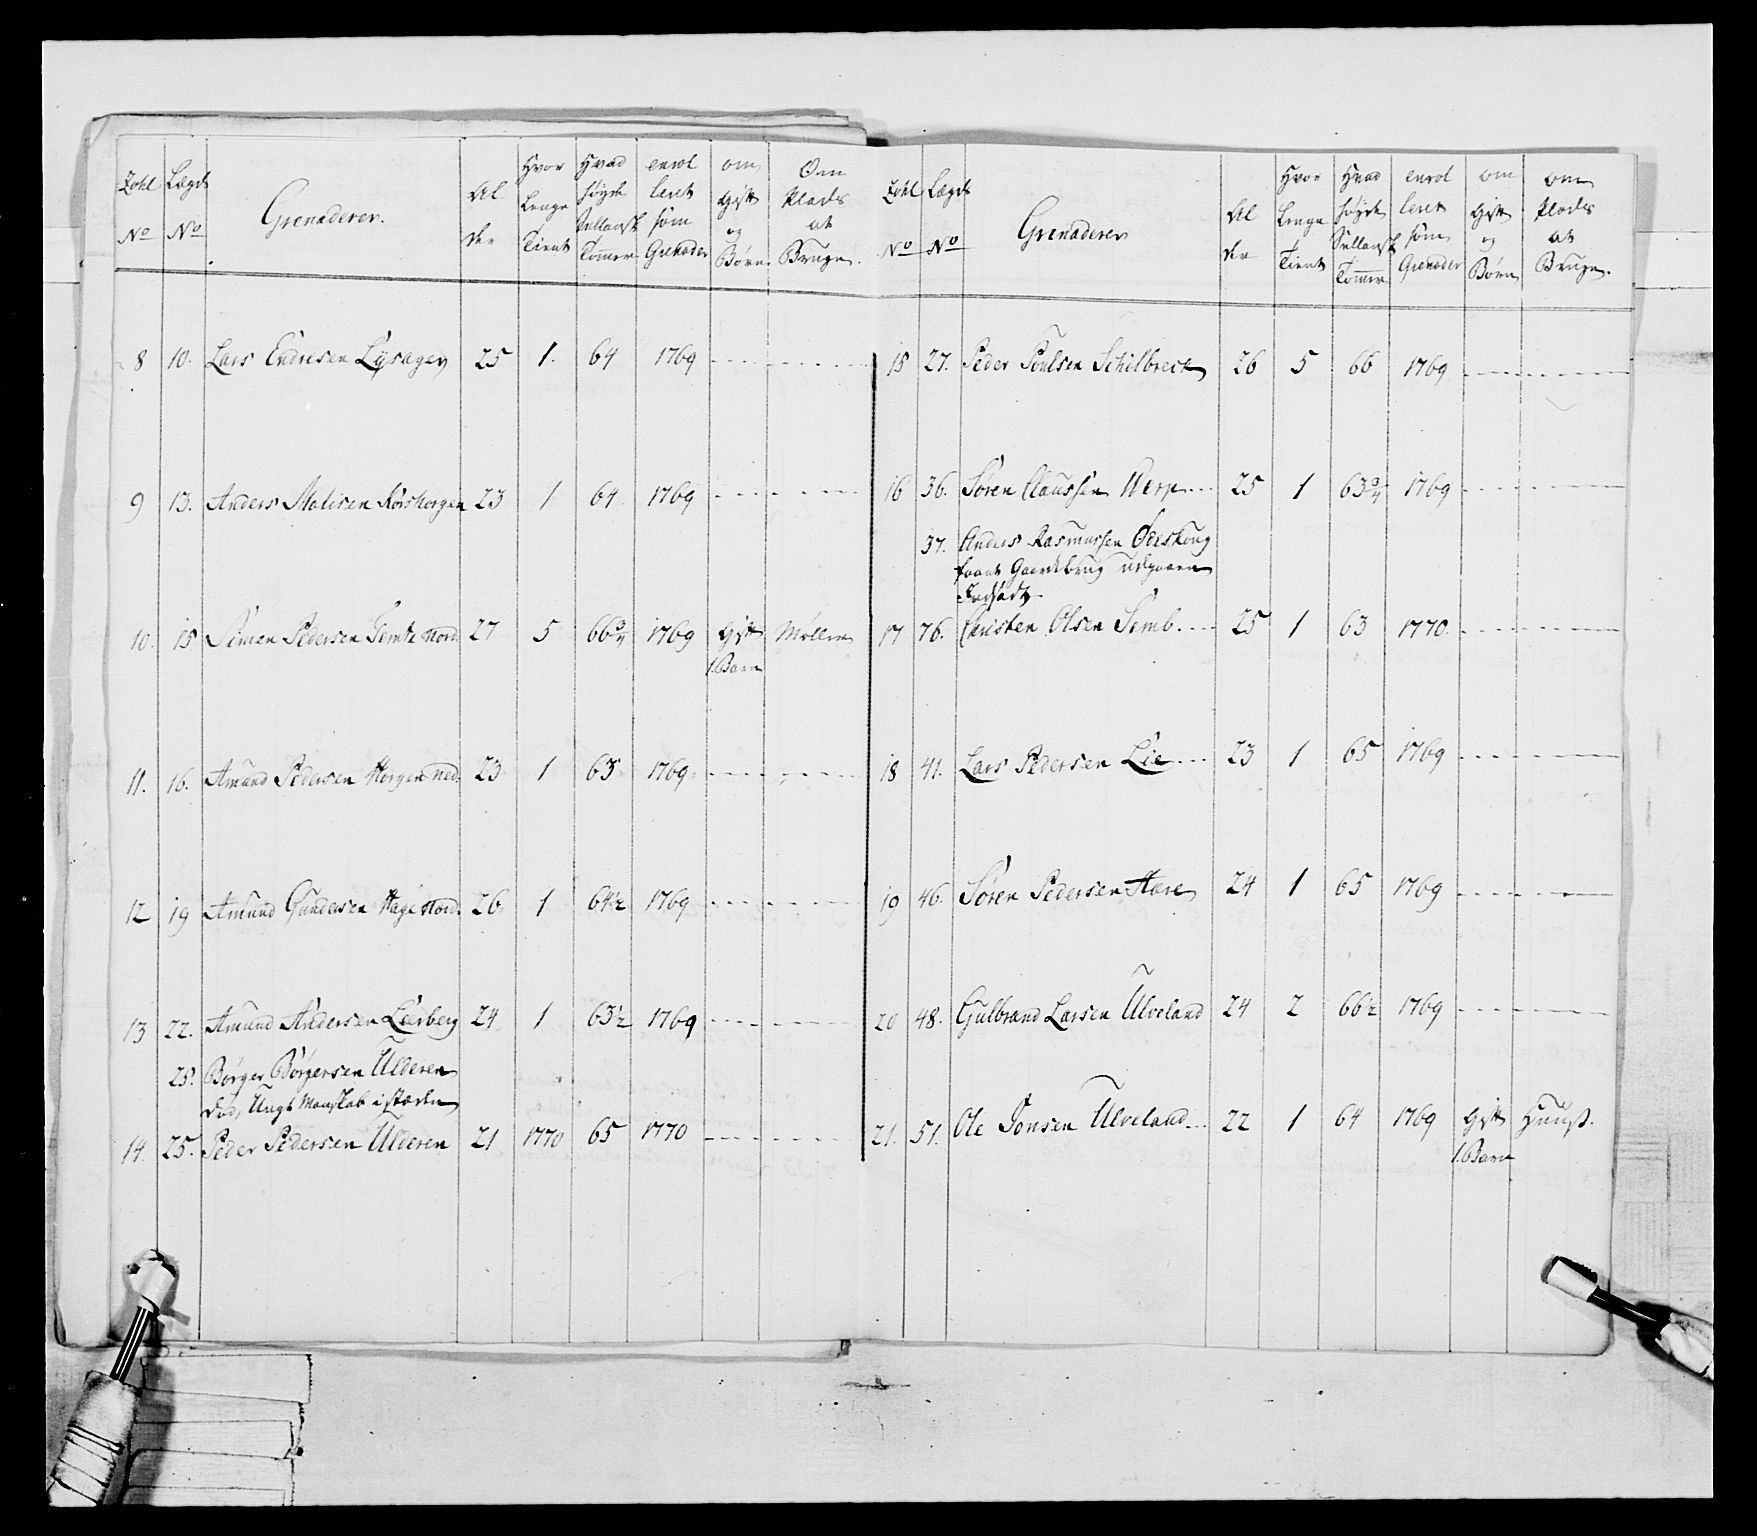 Zahl No | Lægds No | Grenaderer. | Al der | Hvor Lenge Tient | Hvad høyde Sellansk Tommer | enrol leret som Grenader | om Gift og Børn | Om Plads at Bruge.
8 | 10. | Lars Endresen Lysager | 25 | 1. | 64 | 1769
9 | 13. | Anders Matisen Korshorgen | 23 | 1 | 64 | 1769
10. | 15 | Simen Pedersen Temte Nord. | 27 | 5 | 66 3/4 | 1769 | Gift | Møller
1. Barn
11. | 16. | Amund Pedersen Horgen ned. | 23 | 1 | 65 | 1769
12 | 19 | Amund Gundersen Hage Nord. | 26 | 1 | 64 1/2 | 1769
13 | 22. | Amund Andersen Lierberg | 24 | 1 | 63 1/2 | 1769
25. | Børger Børgersen Ulderen
død, Ungt Manskab i stæden
14. | 25. | Peder Pedersen Ulderen | 21 | 1770 | 65 | 1770
Zahl No | Lægds No | Grenaderer | Al der | Hvor Lenge Tient | Hvad høyde Sellansk Tommer | enrol leret som Grenader | om Gift og Børn | om Plads at Bruge.
15 | 27. | Peder Poulsen Schilbrect | 26 | 5 | 66 | 1769
16 | 36. | Søren Claussen Werp | 25 | 1 | 63 3/4 | 1769
37. | Anders Rasmussen Ødeskoug
faaet Gaardebrug udgaaen
17 | 76. | Christen Olsen Semb. | 25 | 1 | 63 | 1770
18 | 41. | Lars Pedersen Lie | 23 | 1 | 65 | 1769
19 | 46. | Søren Pedersen Hære | 24 | 1 | 65 | 1769
20 | 48. | Gulbrand Larsen Ulveland | 24 | 2 | 66 1/2 | 1769
21. | 51. | Ole Jonsen Ulveland | 22 | 1 | 64 | 1769 | Gift | Huuß.
1. Barn